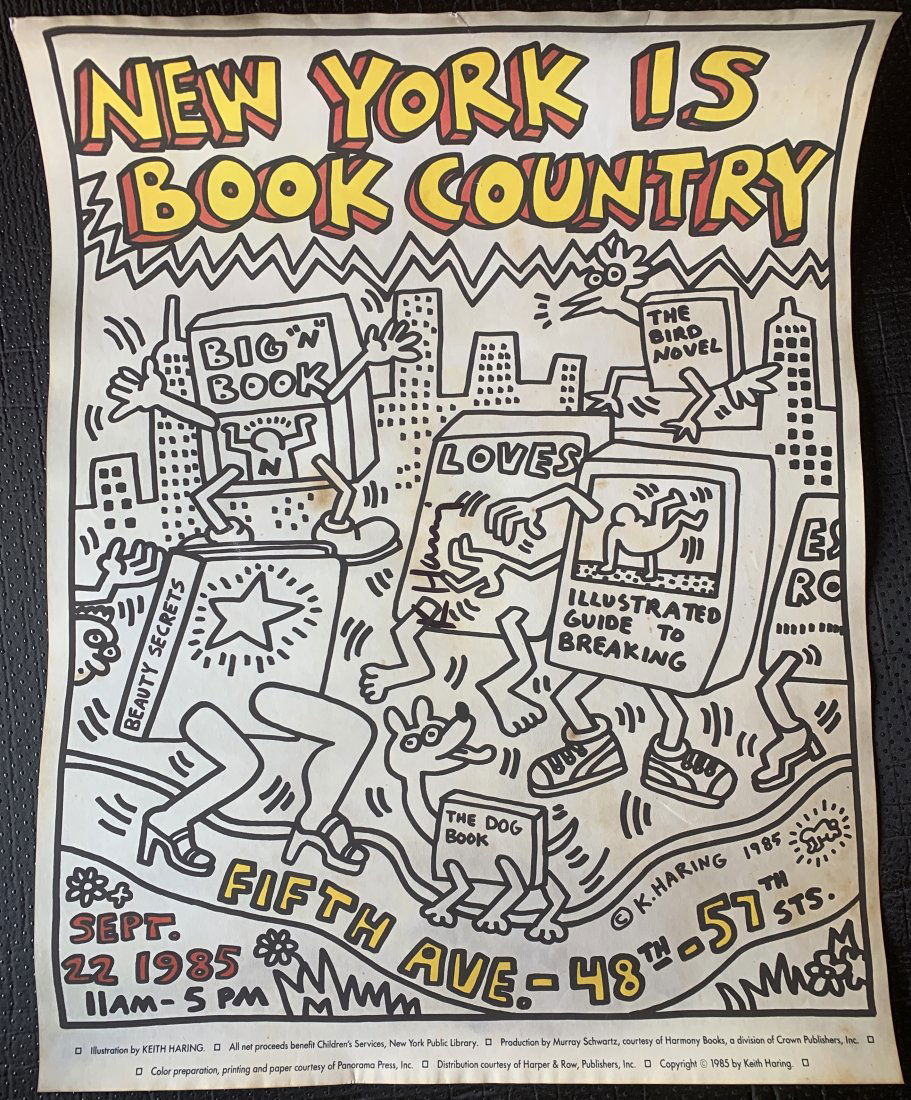 NEW YORK IS
BOOK COUNTRY
BIG "N"
BOOK
N
THE
BIRD
NOVEL
LOVES
ILLUSTRATED
GUIDE TO
BREAKING
ES
RO
BEAUTY SECRETS
THE DOG
BOOK
© K. HARING 1985
FIFTH AVE. - 48TH - 57TH STS.
SEPT.
22 1985
11AM - 5 PM
Illustration by KEITH HARING. All net proceeds benefit Children's Services, New York Public Library. Production by Murray Schwartz, courtesy of Harmony Books, a division of Crown Publishers, Inc.
Color preparation, printing and paper courtesy of Panorama Press, Inc. Distribution courtesy of Harper & Row, Publishers, Inc. Copyright © 1985 by Keith Haring.